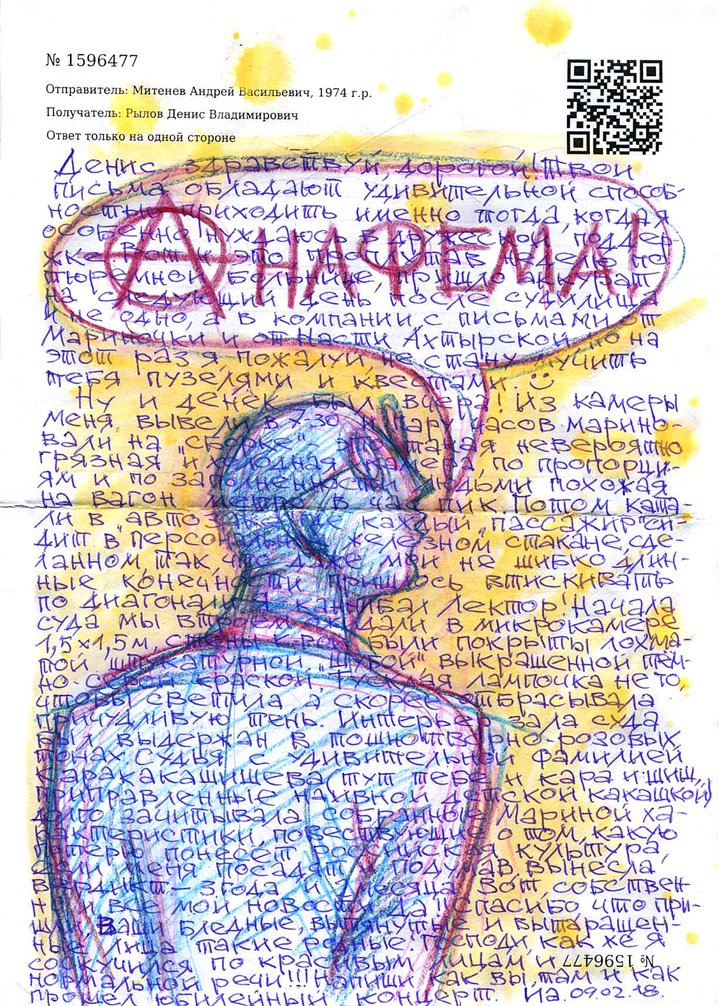 № 1596477
Отправитель: Митенев Андрей Васильевич, 1974 г.р.
Получатель: Рылов Денис Владимирович
Ответ только на одной стороне
Денис здравствуй дорогой! Твои
письма обладают удивительной способ-
ностью приходить именно тогда, когда я
особенно нуждаюсь в дружеской поддер-
жке. Вот и это
АНАФЕМА!
тюремной больнице, пришло аккурат
на следующий день после судилища
и не одно, а в компании с письмами от
Мариночки и от Насти Ахтырской, но на
этот раз я, пожалуй, не стану мучить
тебя пузелями и квестами.
Ну и денек был вчера! Из камеры
меня вывели в 7-30 и пару часов марино-
вали на "сборке" это такая невероятно
грязная и холодная камера, по пропорци-
ям и по заполненности людьми похожая
на вагон метро в час пик. Потом ката-
ли в "автозаке", где каждый "пассажир" си-
дит в персональном железном стакане, сде-
ланном так, что даже мои не шибко длин-
ные конечности пришлось втискивать
по диагонали. Ганнибал Лектор! Начала
суда мы ждали в микрокамере
1,5×1,5м стены были покрыты лохма-
той штукатурной "шубой" выкрашенной
серой краской, тусклая лампочка не то,
что бы светила а скорее отбрасывала
причудливую тень. Интерьер зала суда
был выдержан в тошнотворно розовых
тонах Судья с удивительной фамилией
Каракакашишева
приправленные наивной детской какашкой)
долго зачитывала собранные Мариной ха-
рактеристики, повествующие о том, какую
потерю понесет российская культура,
если меня посадят, а подумав, вынесла
вердикт – 3 года и месяца. Вот собствен-
но и все мои новости, да! Спасибо, что при-
шли Ваши бледные, вытянутые и вытаращен-
ные лица такие родные! Господи, как же я
соскучился по красивым лицам и
№ 1596477
нормальной речи!!! Напиши как вы там и как
прошел юбилейный концерт. 09.02.18.